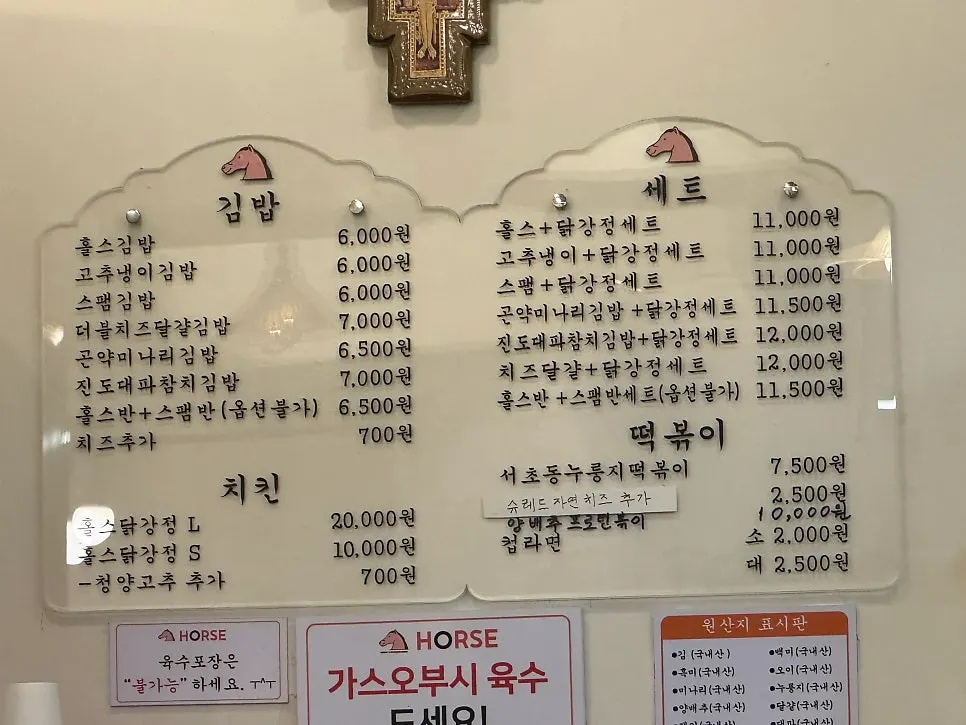 김밥
홀스김밥 6,000원
고추냉이김밥 6,000원
스팸김밥 6,000원
더블치즈달걀김밥 7,000원
곤약미나리김밥 6,500원
진도대파참치김밥 7,000원
홀스반+스팸반(옵션불가) 6,500원
치즈추가 700원
치킨
홀스닭강정 L 20,000원
홀스닭강정 S 10,000원
-청양고추 추가 700원
세트
홀스+닭강정세트 11,000원
고추냉이+닭강정세트 11,000원
스팸+닭강정세트 11,000원
곤약미나리김밥+닭강정세트 11,500원
진도대파참치김밥+닭강정세트 12,000원
치즈달걀+닭강정세트 12,000원
홀스반+스팸반세트(옵션불가) 11,500원
떡볶이
서초동누룽지떡볶이 7,500원
슈레드자연치즈 추가 2,500원
양배추 10,000원
컵라면 소 2,000원
대 2,500원
HORSE
육수포장은
"불가능" 하세요. ㅜ^ㅜ
HORSE
가스오부시 육수
드세요!
원산지 표시판
●김 (국내산)
●흑미(국내산)
●미나리(국내산)
●양배추(국내산)
●백미(국내산)
●오이(국내산)
●누룽지(국내산)
●달걀(국내산)
●대파(국내산)